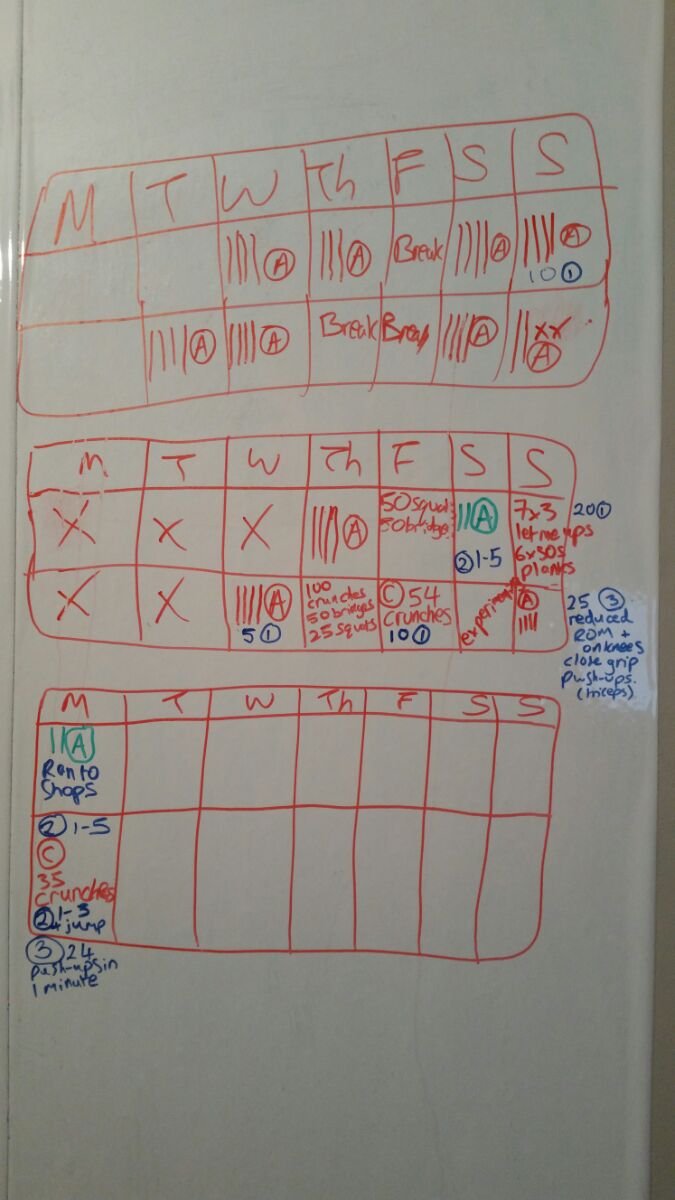 M T W Th F S S
|||| A ||| A Break ||||| A |||| A
10 1
||||| A |||| A Break Break ||||| A || xx
A
M T W Th F S S
X X X |||| A 50 squats 50 bridges || A 2 1-5 7x3 let me ups 6x30s planks 20 1
X X |||| A 5 1 100 crunches 50 bridges 25 squats C 54 crunches 10 1 experiment A ||||
25 3
reduced
ROM +
on knees
close grip
push-ups.
(triceps)
M T W Th F S S
|| A
Ran to
Shops
2 1-5
C
35
crunches
2 1-3
jump
3 24
push-ups in
1 minute